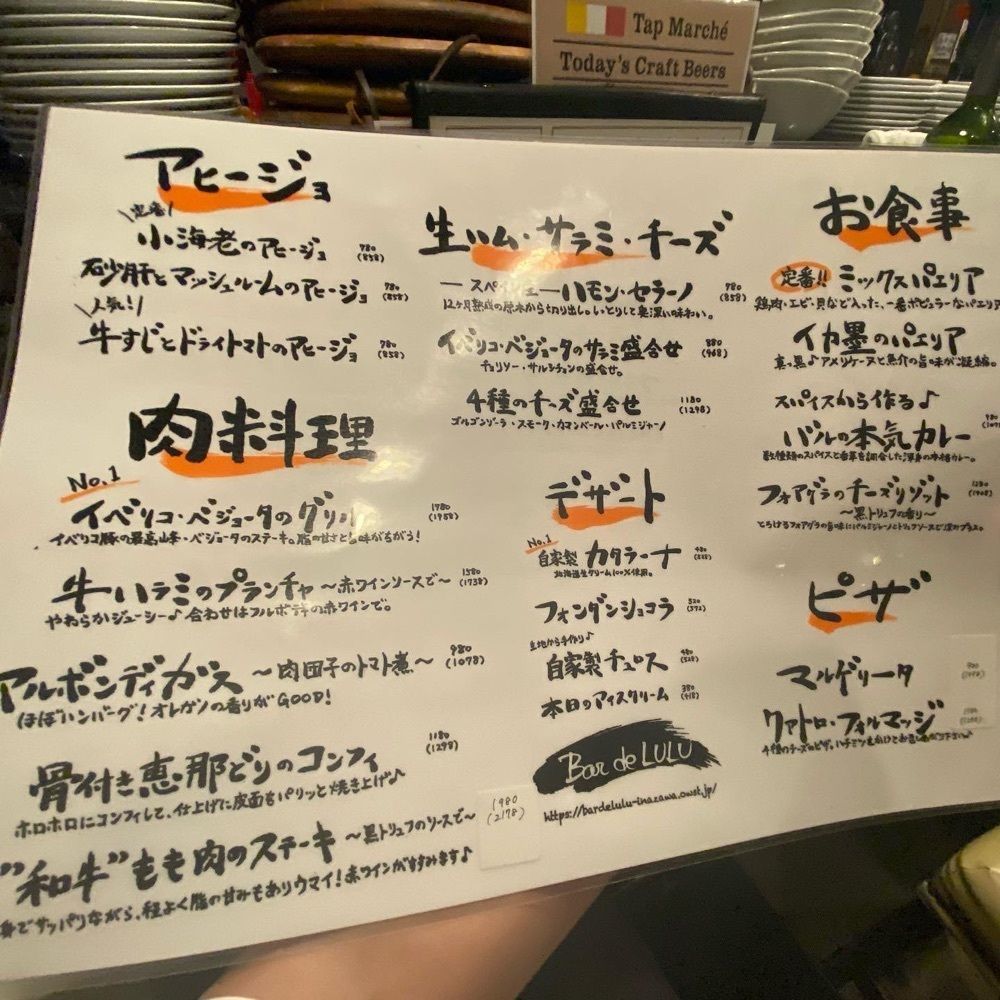 Tap Marché
Today's Craft Beers
アヒージョ
\定番/
小海老のアヒージョ 780 (858)
砂肝とマッシュルームのアヒージョ 780 (858)
\人気!/
牛すじとドライトマトのアヒージョ 780 (858)
肉料理
No.1
イベリコ・ベジョータのグリル 1780 (1958)
イベリコ豚の最高山条・ベジョータのステーキ。脂の甘さと旨味がちがう!
牛ハラミのプランチャ 〜赤ワインソースで〜 1580 (1738)
やわらかジューシー♪ 合わせはフルボディの赤ワインで。
アルボンディガス 〜肉団子のトマト煮〜 980 (1078)
ほぼハンバーグ! オレガノの香りがGOOD!
骨付き恵那どりのコンフィ 1180 (1298)
ホロホロにコンフィして、仕上げに皮面をパリッと焼き上げ♪
"和牛"もも肉のステーキ 〜黒トリュフのソースで〜 1980 (2178)
身でサッパリながら、程よく脂の甘みもありウマイ! 赤ワインがすすみます♪
生ハム・サラミ・チーズ
― スペイン産 ― ハモン・セラーノ 780 (858)
12ヶ月熟成の原木から切り出し。しっとりして奥深い味わい。
イベリコ・ベジョータのサラミ盛合せ 880 (968)
チョリソー・サルシチョンの盛合せ。
4種のチーズ盛合せ 1180 (1298)
ゴルゴンゾーラ・スモーク・カマンベール・パルミジャーノ
デザート
No.1
自家製 カタラーナ 480
北海道生クリーム100%使用。
フォンダンショコラ 520 (572)
生地から手作り♪
自家製チュロス 480 (528)
本日のアイスクリーム 380 (418)
Bar de LULU
https://bardelulu-inazawa.owst.jp/
お食事
定番!! ミックスパエリア
鶏肉・エビ・貝など入った、一番ポピュラーなパエリア
イカ墨のパエリア
真っ黒♪ アメリケーヌと魚介の旨味が凝縮。
スパイスから作る♪
バルの本気カレー 980
数種類のスパイスと香草を調合した渾身の本格カレー。
フォアグラのチーズリゾット 1280 (1408)
〜黒トリュフの香り〜
とろけるフォアグラの旨味にパルミジャーノとトリュフソースで深みプラス。
ピザ
マルゲリータ
クァトロ・フォルマッジ
4種のチーズのピザ。ハチミツをかけてお召し上がり下さい♪